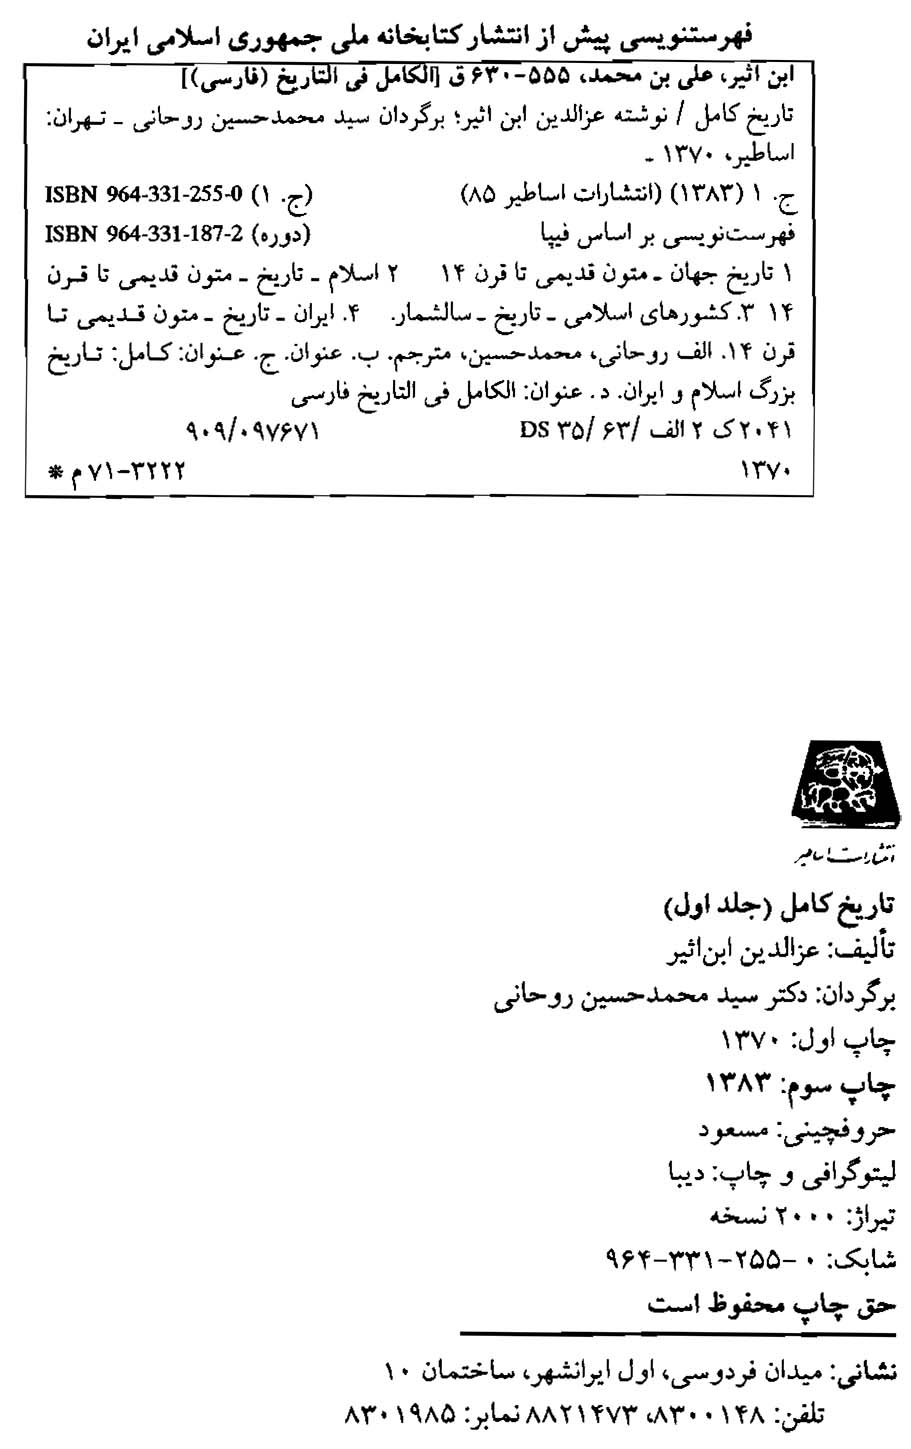 فهرستنویسی پیش از انتشار کتابخانه ملی جمهوری اسلامی ایران
ابن اثیر، علی بن محمد، ۵۵۵-۶۳۰ ق [الکامل فی التاریخ (فارسی)]
تاریخ کامل / نوشته عزالدین ابن اثیر؛ برگردان سید محمدحسین روحانی ـ تهران:
اساطیر، ۱۳۷۰ ـ
ج. ۱ (۱۳۸۳) (انتشارات اساطیر ۸۵) ISBN 964-331-255-0 (ج. ۱)
فهرست‌نویسی بر اساس فیپا ISBN 964-331-187-2 (دوره)
۱ تاریخ جهان ـ متون قدیمی تا قرن ۱۴ ۲ اسلام ـ تاریخ ـ متون قدیمی تا قرن
۱۴ ۳. کشورهای اسلامی ـ تاریخ ـ سالشمار. ۴. ایران ـ تاریخ ـ متون قدیمی تا
قرن ۱۴. الف روحانی، محمدحسین، مترجم. ب. عنوان. ج. عنوان: کامل: تاریخ
بزرگ اسلام و ایران. د. عنوان: الکامل فی التاریخ فارسی
۲۰۴۱ ک ۲ الف /۶۳ /۳۵ DS ۹۰۹/۰۹۷۶۷۱
۱۳۷۰ ۷۱-۳۲۲۲ م *
انتشارات اساطیر
تاریخ کامل (جلد اول)
تألیف: عزالدین ابن‌اثیر
برگردان: دکتر سید محمدحسین روحانی
چاپ اول: ۱۳۷۰
چاپ سوم: ۱۳۸۳
حروفچینی: مسعود
لیتوگرافی و چاپ: دیبا
تیراژ: ۲۰۰۰ نسخه
شابک: ۰-۲۵۵-۳۳۱-۹۶۴
حق چاپ محفوظ است
نشانی: میدان فردوسی، اول ایرانشهر، ساختمان ۱۰
تلفن: ۸۳۰۰۱۴۸، ۸۸۲۱۴۷۳ نمابر: ۸۳۰۱۹۸۵